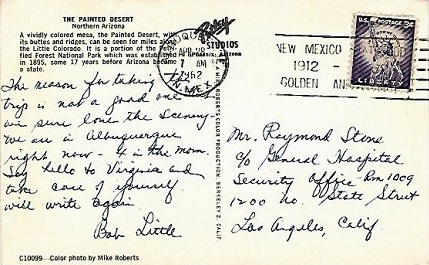 THE PAINTED DESERT
Northern Arizona
A vividly colored mesa, the Painted Desert, with
its buttes and ridges, can be seen for miles along
the Little Colorado. It is a portion of the
fied Forest National Park which was established
in 1895, some 17 years before Arizona became
a state.
Petley
STUDIOS
Phoenix, Arizona
APR 28
1 AM
1962
N. MEX
NEW MEXICO
1912
GOLDEN
U.S. POSTAGE 3¢
LIBERTY
MIKE ROBERTS COLOR PRODUCTION, BERKELEY 2, CALIF
The reason for taking this
trip is not a good one
sure love the scenery
We are in Albuquerque
right now - in the morn.
Say hello to Virginia and
take care of yourself
will write again
Bob Little
Mr. Raymond Stone
c/o General Hospital
Security Office Rm 1009
1200 no. State Street
Los Angeles, Calif.
C10099 Color photo by Mike Roberts